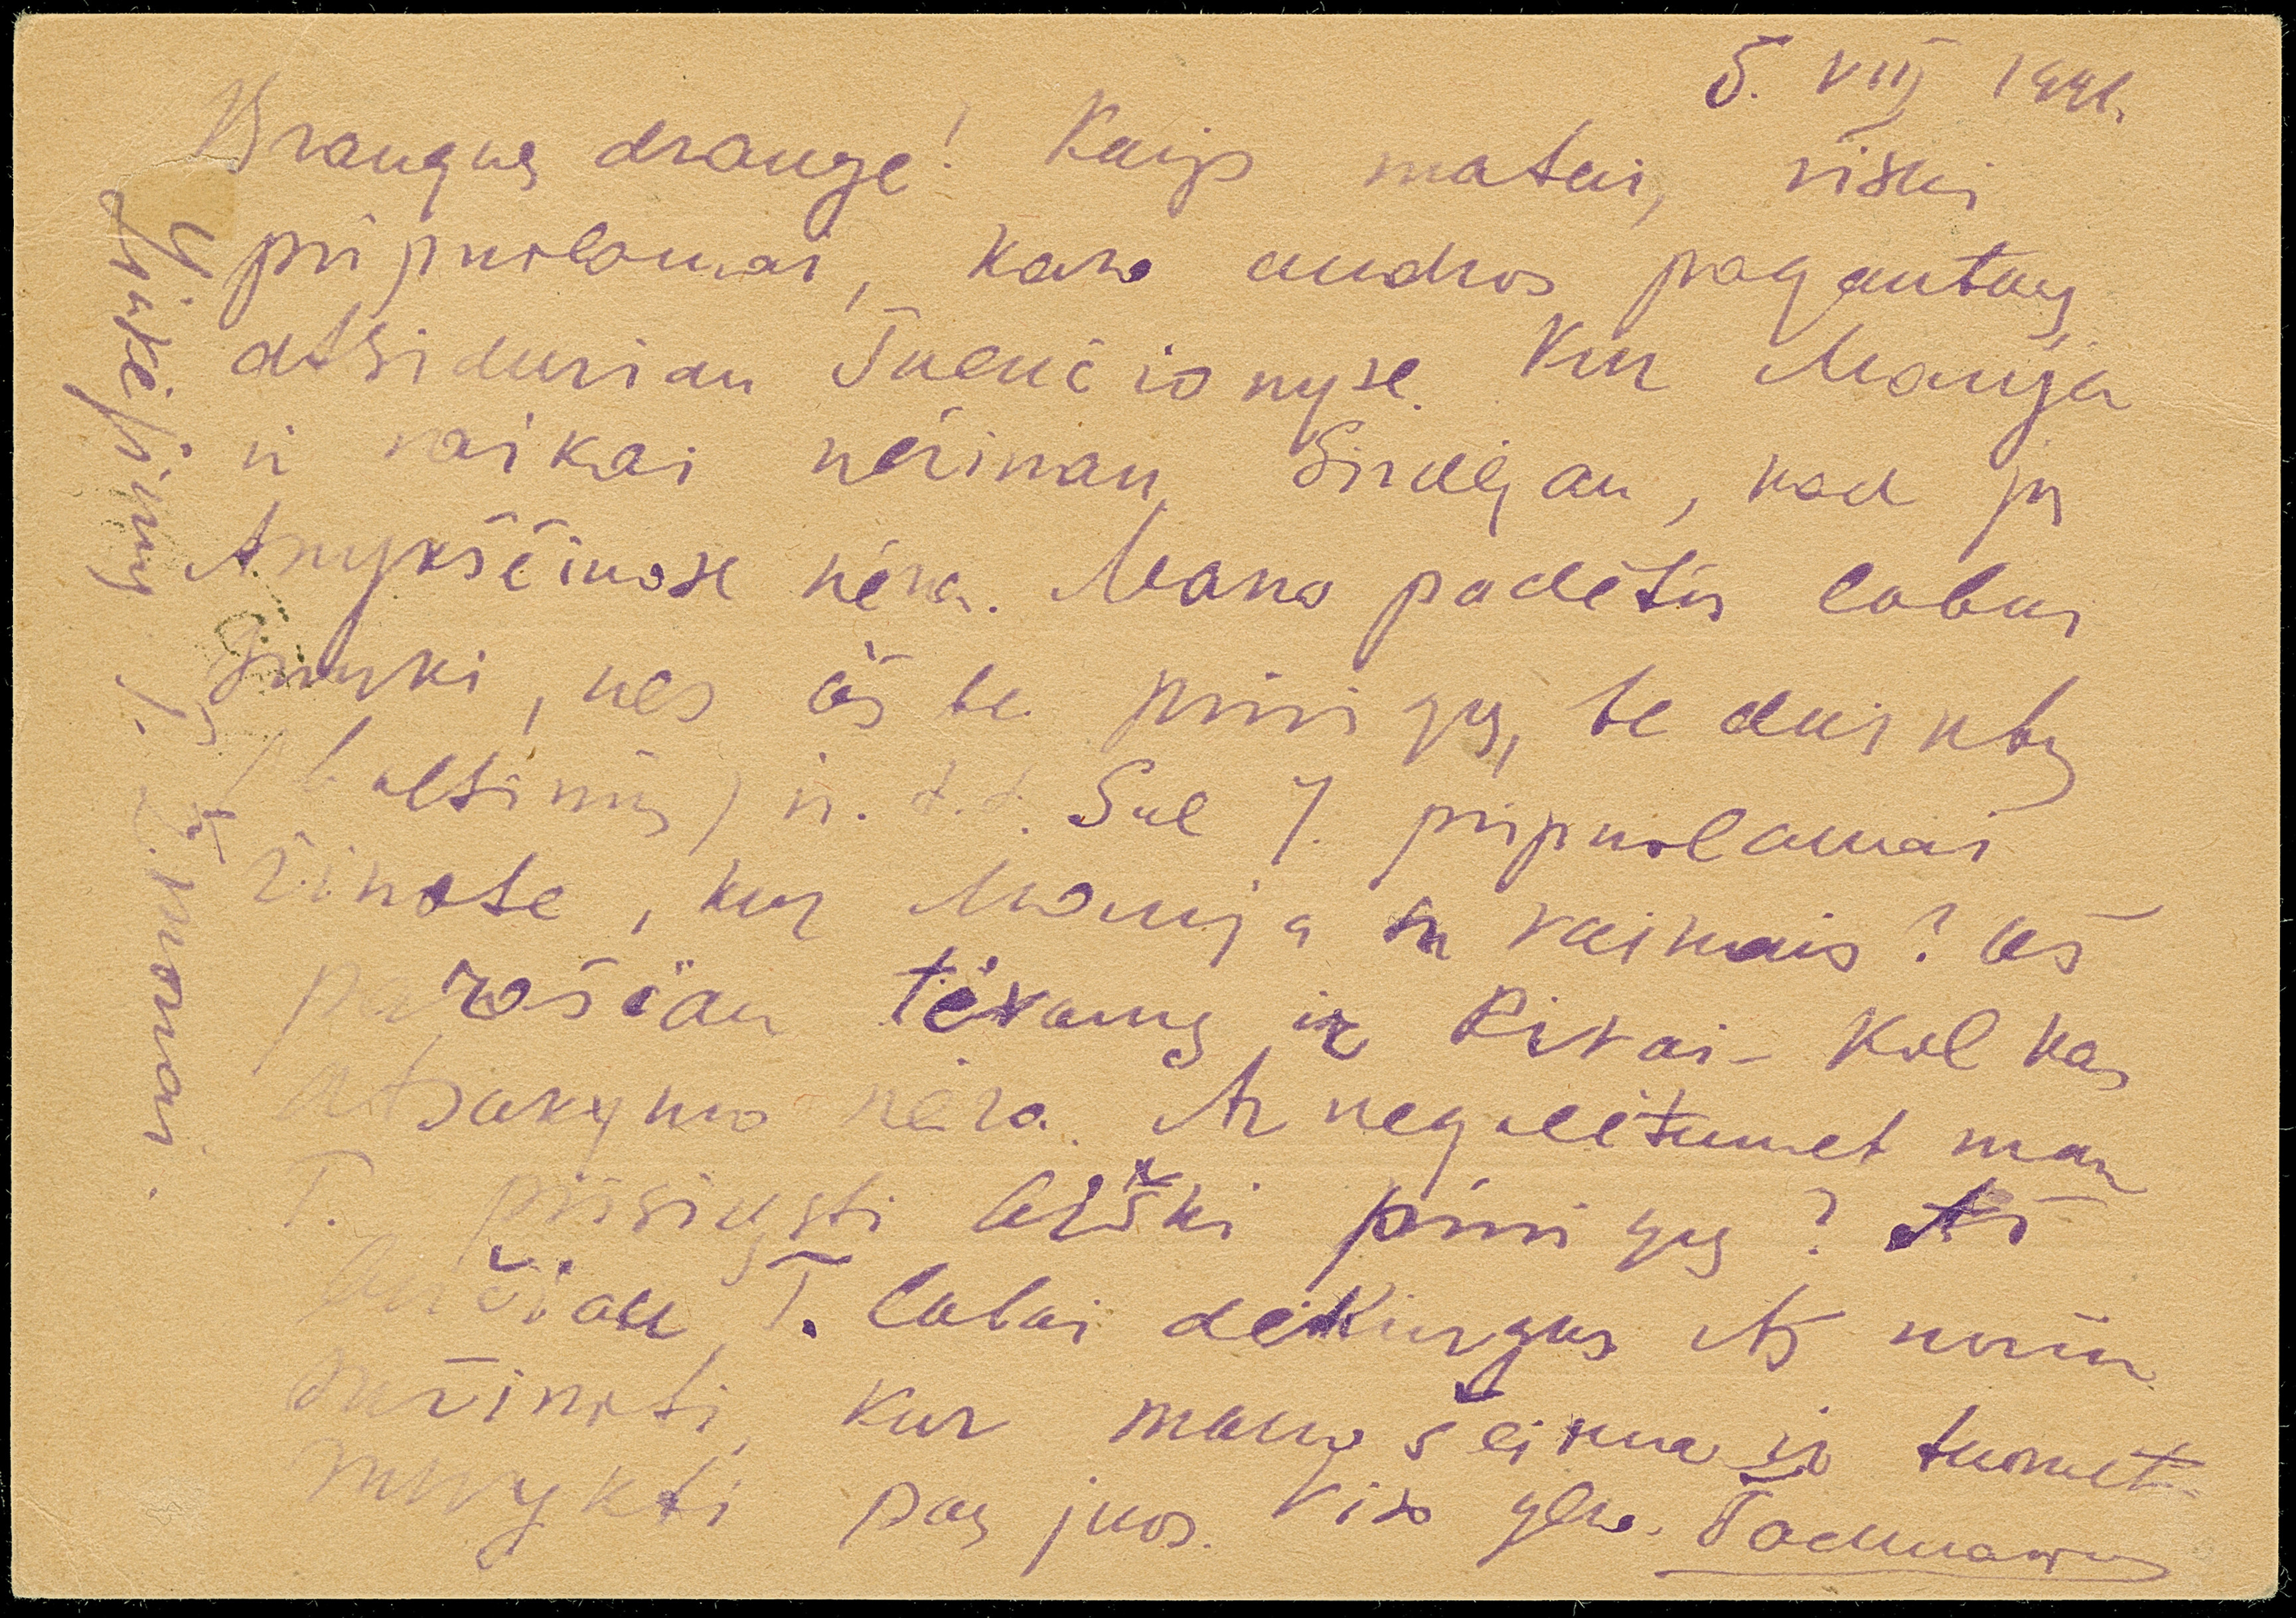 5. VIII 1941.
Brangus drauge! Kaip matai, visai
pripuolamai, karo audros pagautas,
atsiduriau Švenčionyse. Kur Manja
ir vaikai nežinau. Girdėjau, kad jų
Anykščiuose nėra. Mano padėtis labai
sunki, nes aš be pinigų, be drabužių
(baltinių) ir t.t. Gal J. pripuolamai
žinote, kur Manja su vaikais? Aš
parašiau tėvams ir Rivai - kol kas
atsakymo nėra. Ar negalėtumet man
T. prisiųsti biški pinigų? Aš
bučiau T. labai dėkingas. Aš noriu
sužinoti, kur mano šeima ir tuomet
nuvykti pas juos. Viso gero.
Linkėjimų J. žmonai.